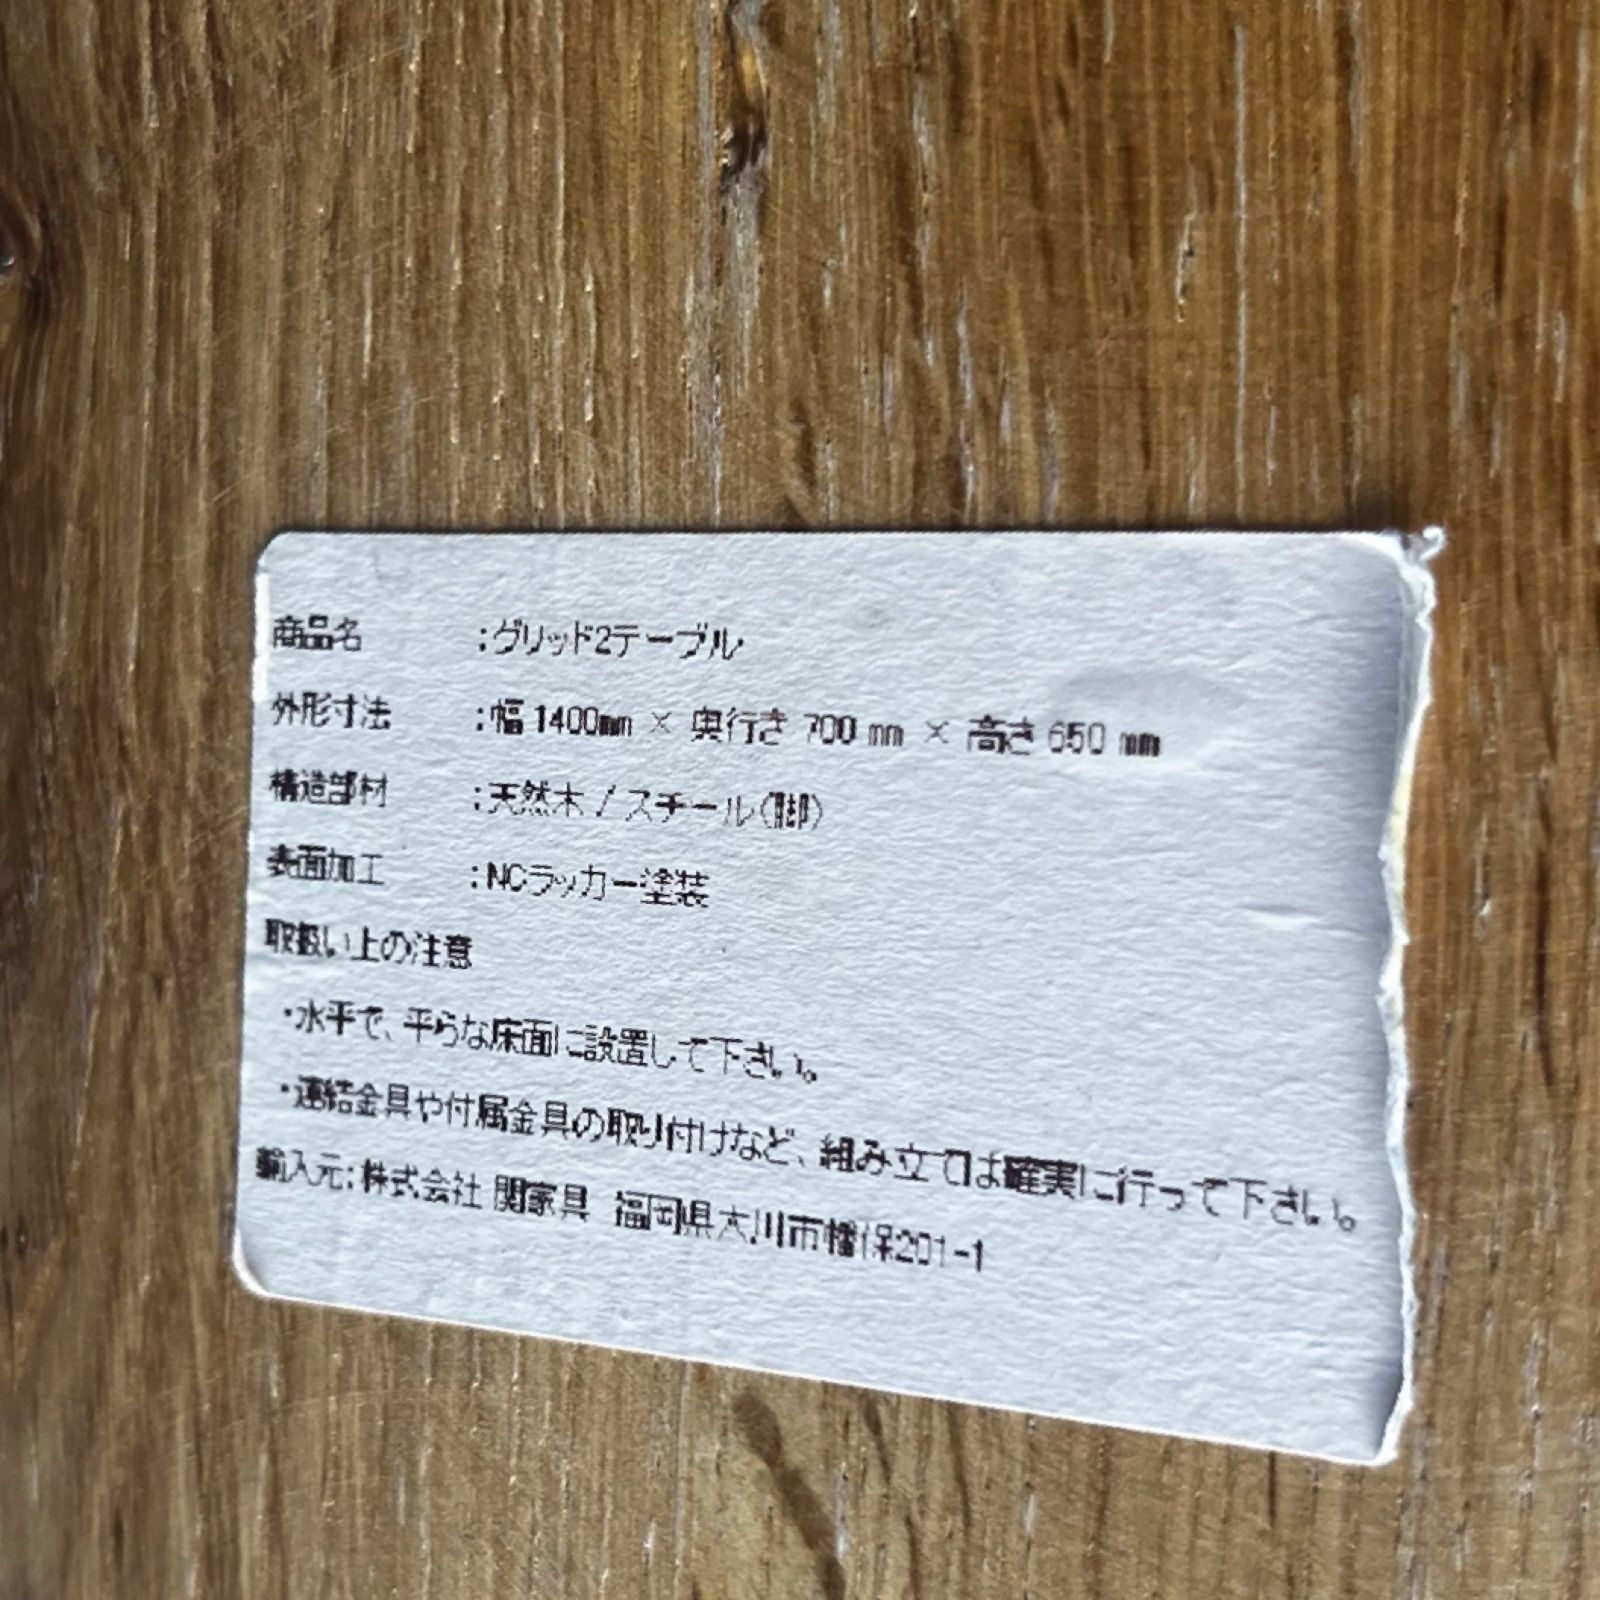 商品名 :グリッド2テーブル
外形寸法 :幅 1400mm × 奥行き 700 mm × 高さ 650 mm
構造部材 :天然木 / スチール(脚)
表面加工 :NCラッカー塗装
取扱い上の注意
・水平で、平らな床面に設置して下さい。
・連結金具や付属金具の取り付けなど、組み立ては確実に行って下さい。
輸入元:株式会社 関家具 福岡県大川市幡保201-1